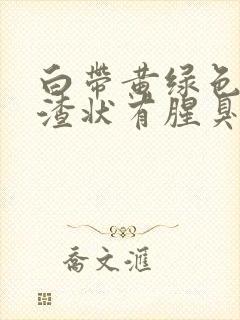 白带黄绿色
渣状有腥臭
喬文滙